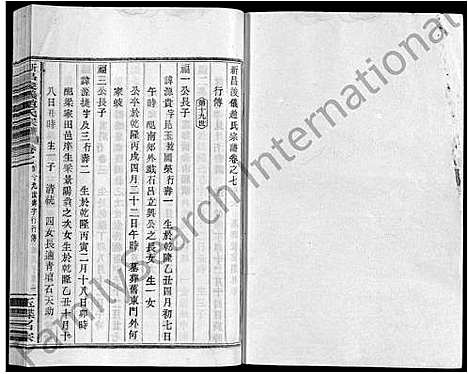 新昌浚儀趙氏宗譜卷之七
行傳
第十九世
福一公長子
諱源貴字昆玉號國榮行壽一 生於乾隆乙丑四月初七日
午時 配南郊外嶽石呂立興公之長女 生一女
公卒於乾隆丙戌四月二十二日午時 墓葬舊東門外何
家坡
福二公長子
諱源捷字及三行壽二 生於乾隆丙寅二月十八日卯時
配梁家田邑庠生梁景陽翁之次女生於乾隆乙丑十月十
八日 時 生一子 清統 四女長適青壇石天助
FamilySearch International